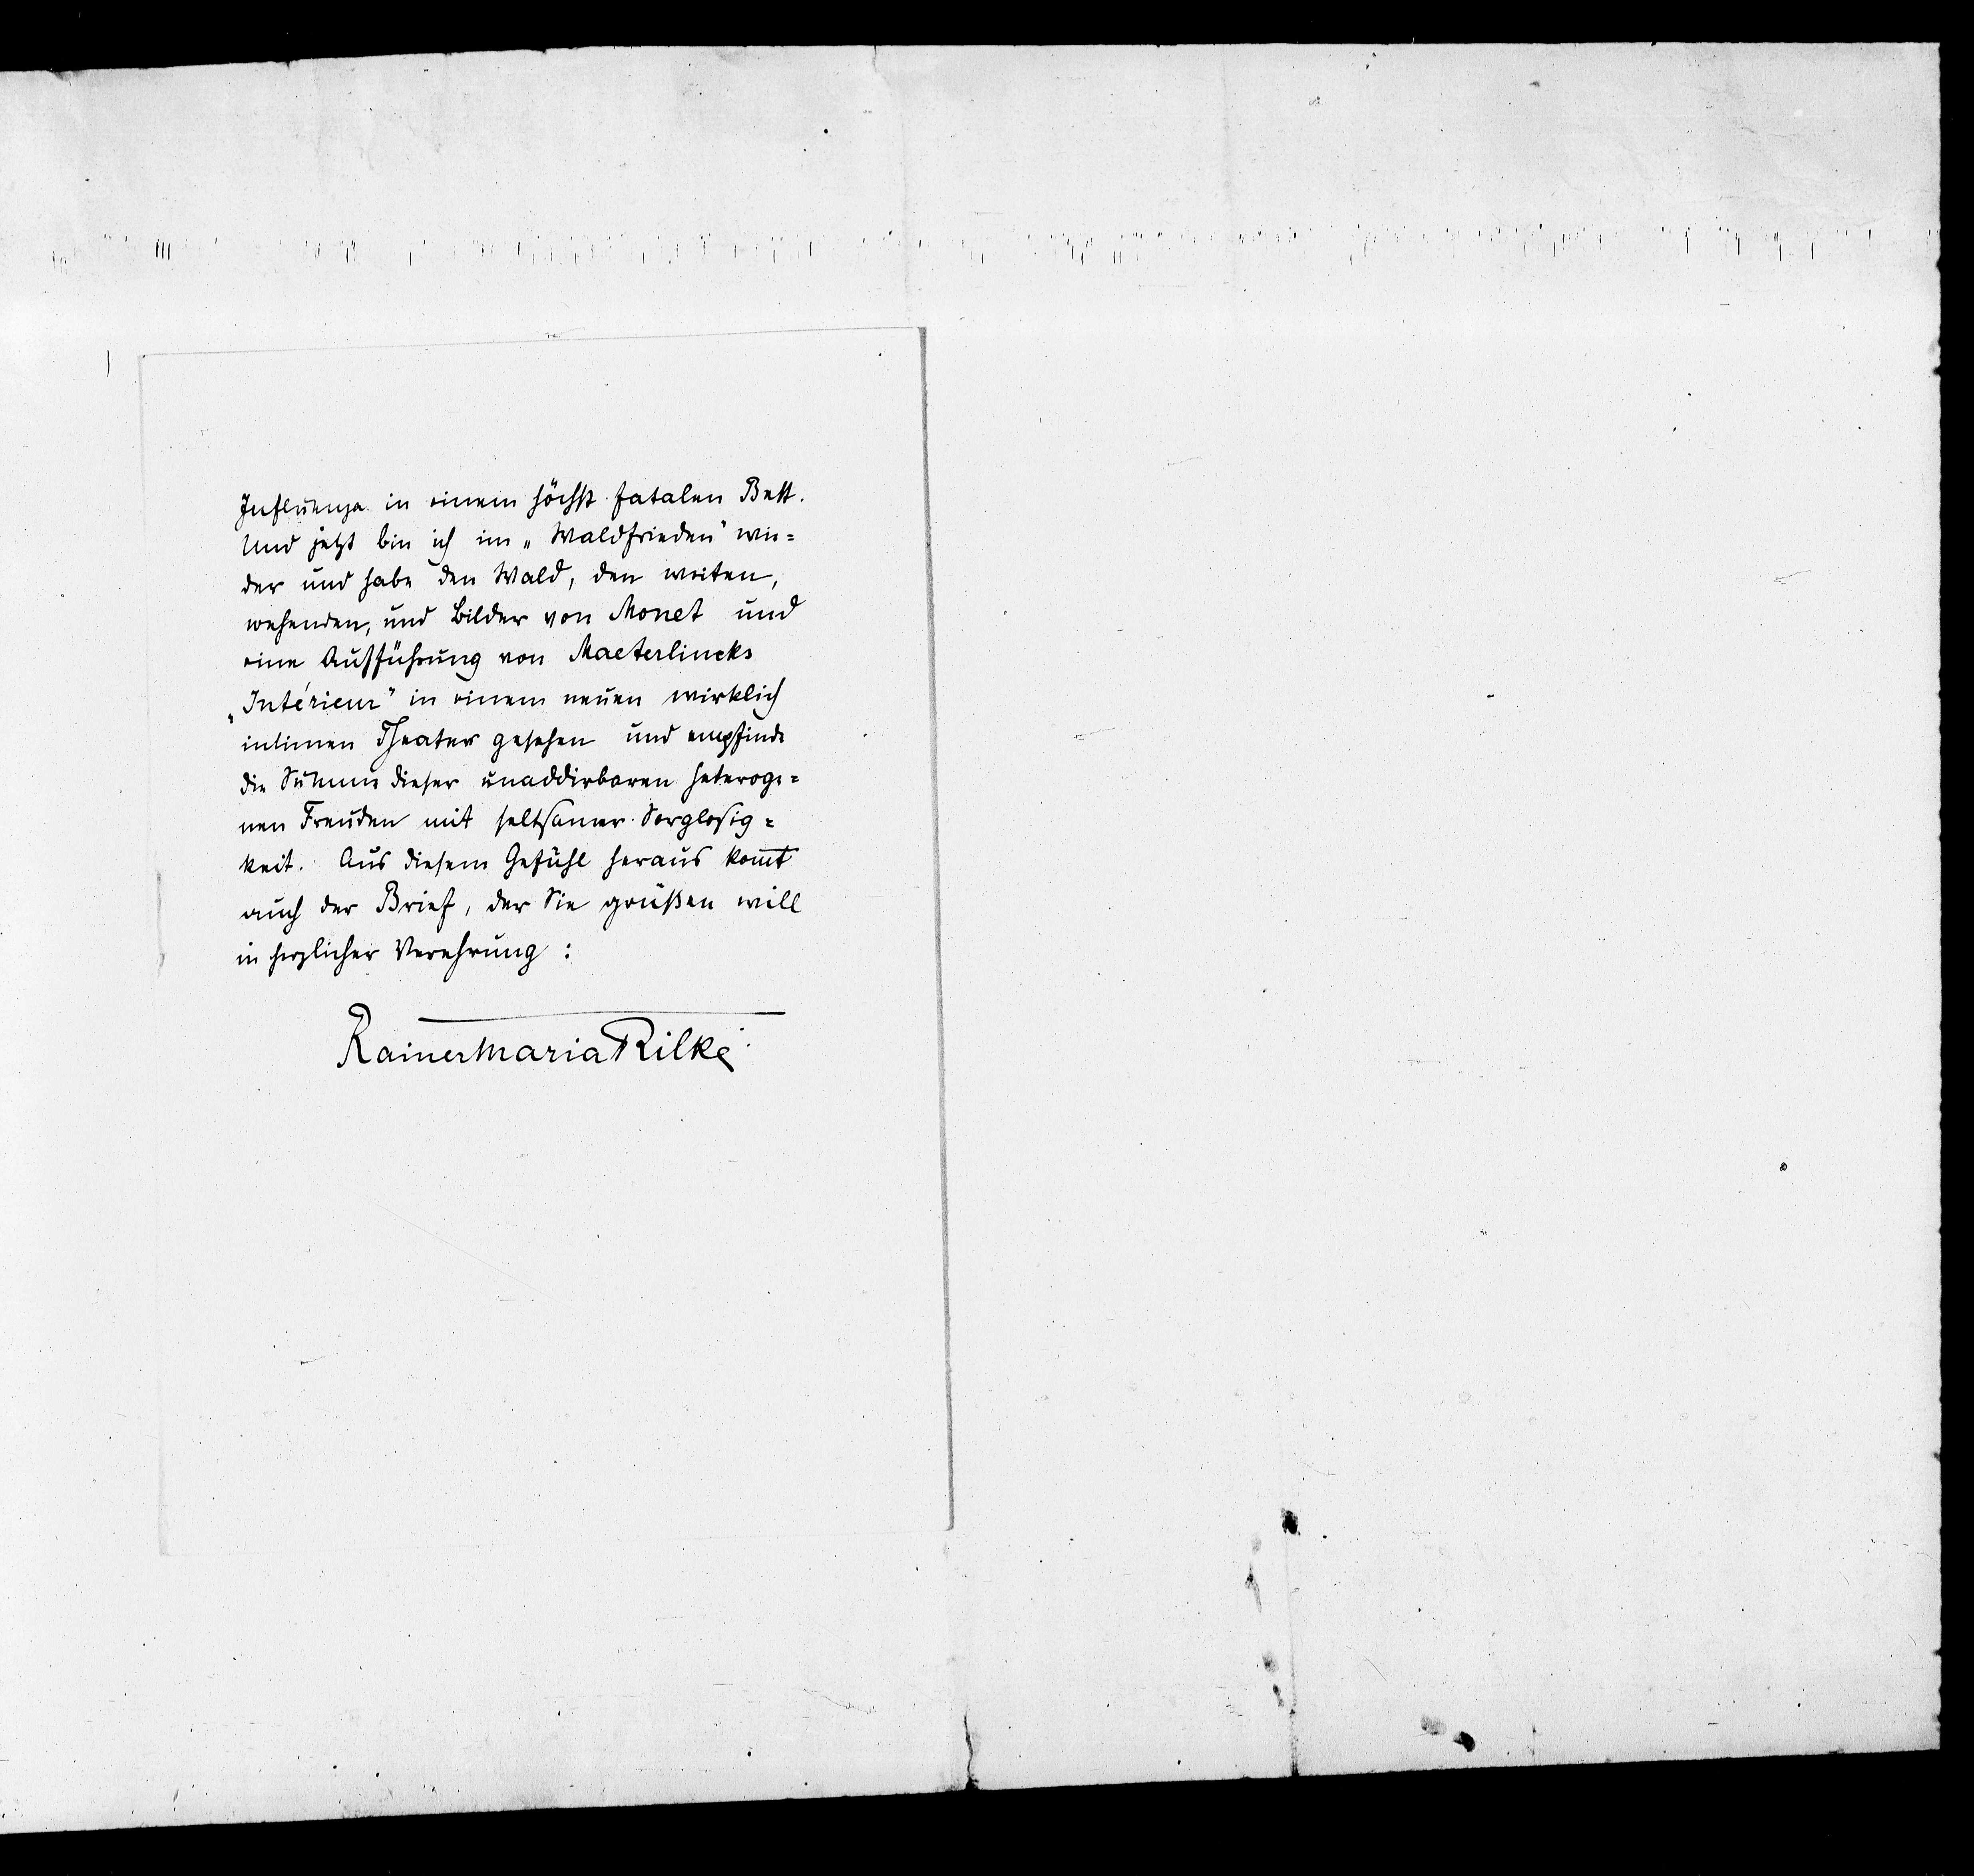 Influenza in einem höchst fatalen Bett.
Und jetzt bin ich im „Waldfrieden" wie=
der und habe den Wald, den weiten,
wehenden, und Bilder von Monet und
eine Aufführung von Maeterlincks
„Intérieur" in einem neuen wirklich
intimen Theater gesehen und empfinde
die Summe dieser unaddirbaren heteroge=
nen Freuden mit seltsamer Sorglosig=
keit. Aus diesem Gefühl heraus kom̅t
auch der Brief, der Sie grüßen will
in herzlicher Verehrung:
RainerMariaRilke